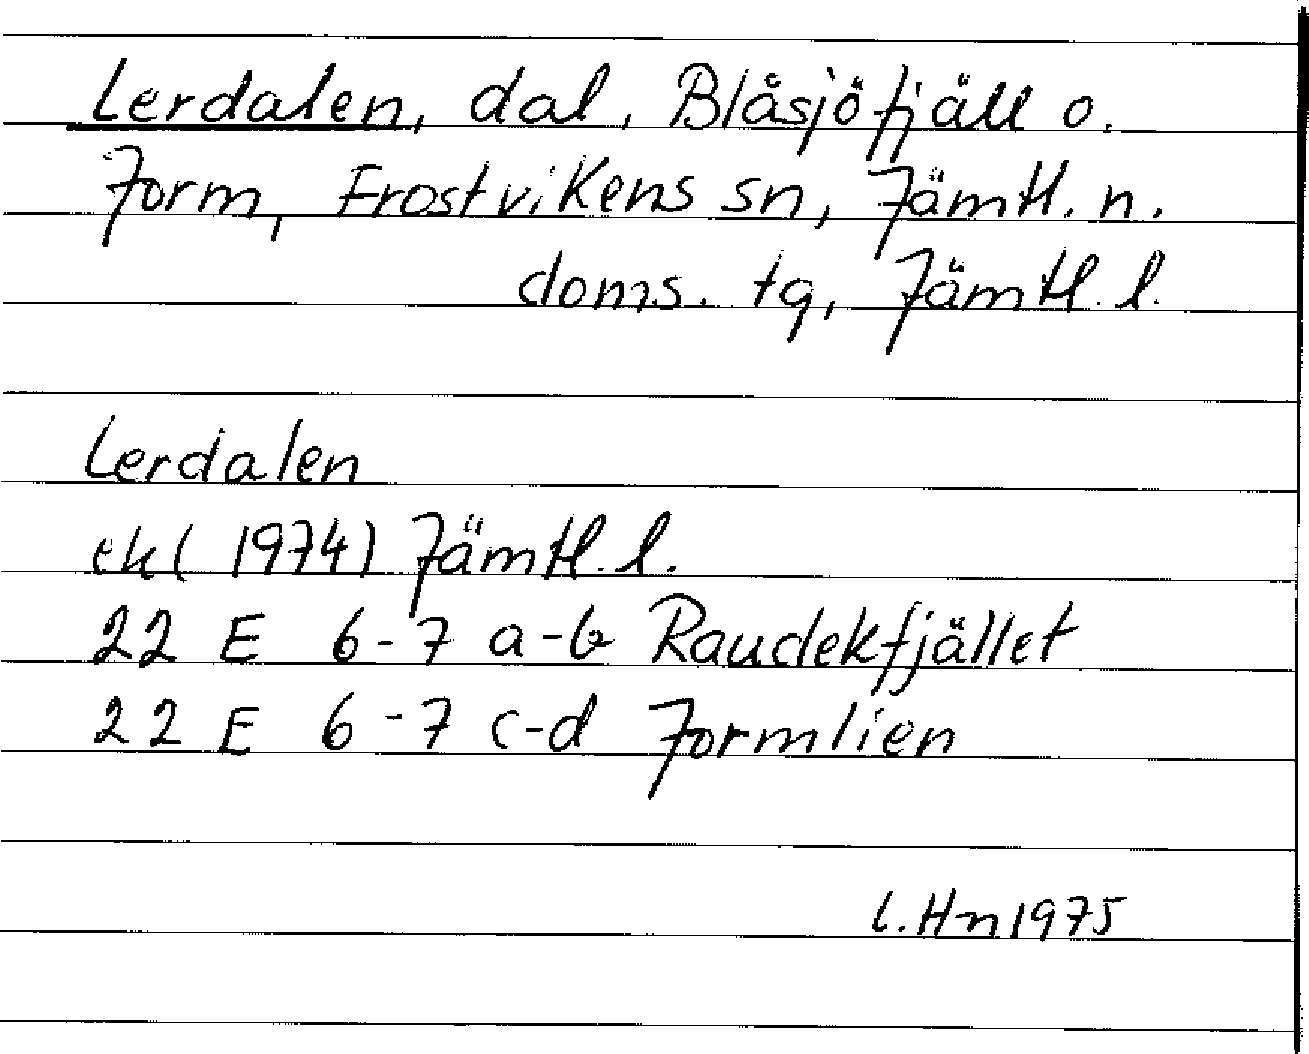 Lerdalen, dal, Blåsjöfjäll o.
Jorm, Frostvikens sn, Jämtl. n.
doms. tg, Jämtl. l.
Lerdalen
ek( 1974) Jämtl. l.
22 E 6-7 a-b Raudekfjället
22 E 6-7 c-d Jormlien
L.Hn 1975